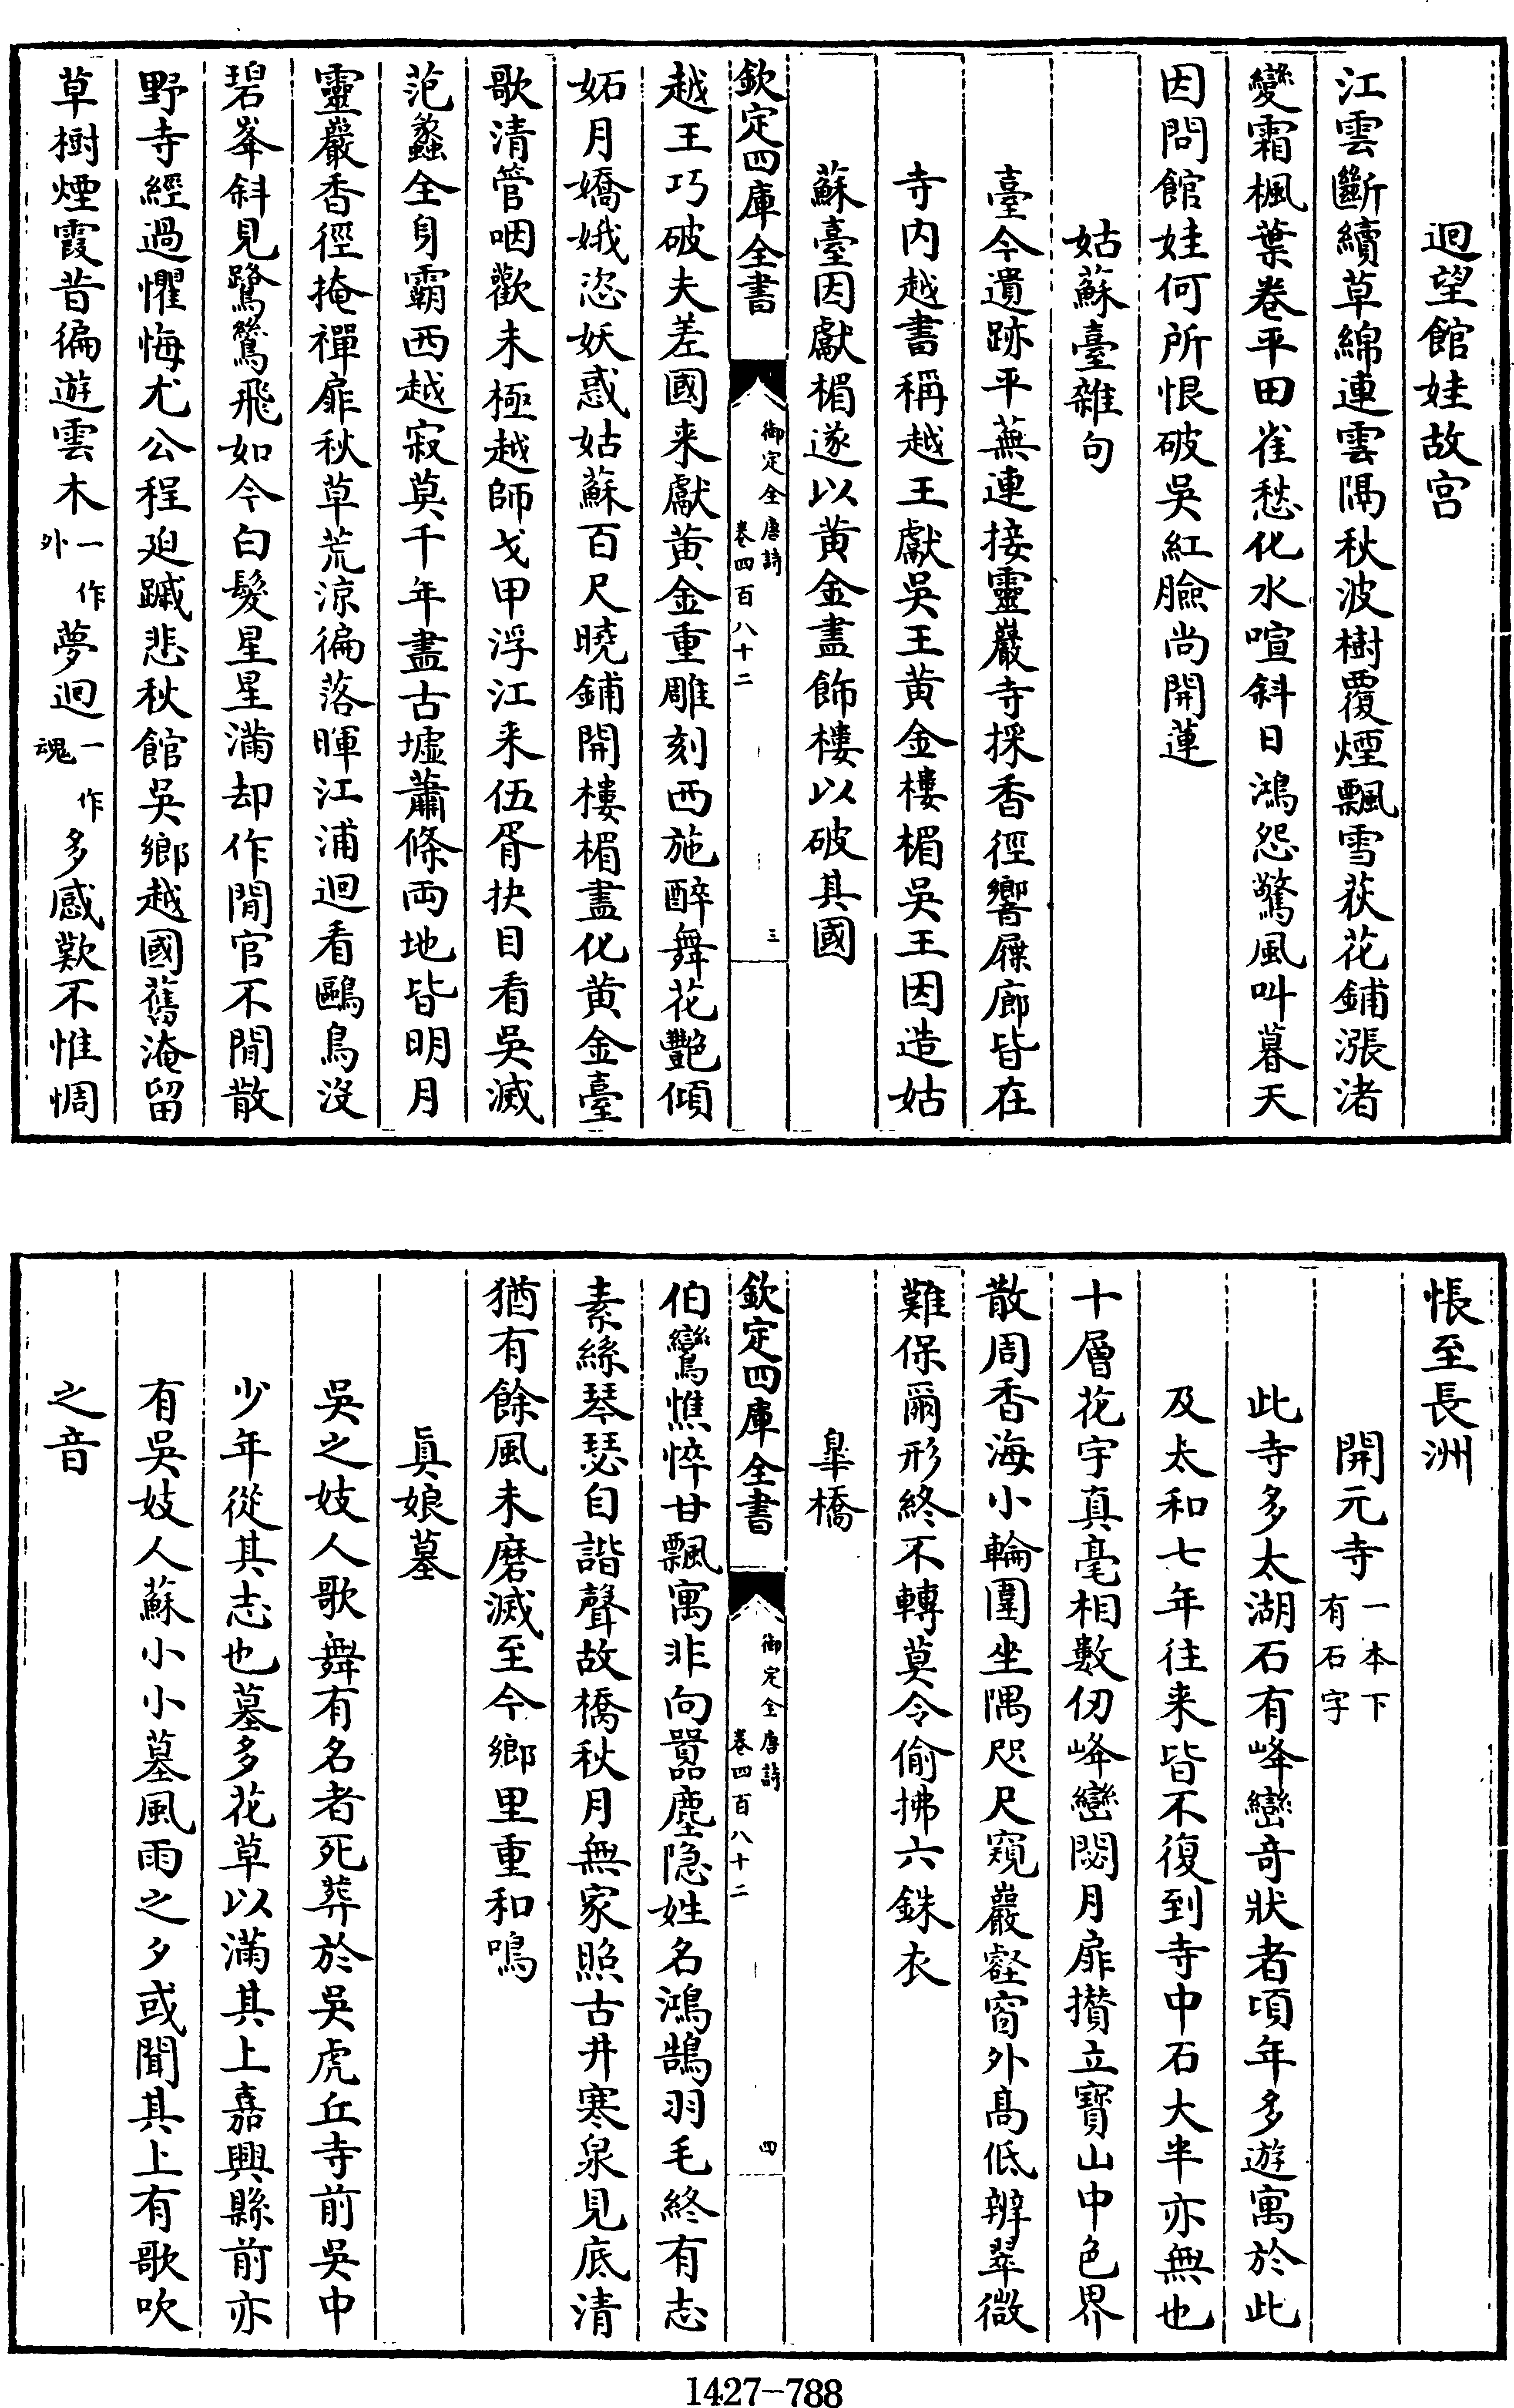 迴望館娃故宮
江雲斷續草綿連雲隔秋波樹覆煙飄雪荻花鋪漲渚
變霜楓葉卷平田雀愁化水喧斜日鴻怨驚風叫暮天
因問館娃何所恨破吳紅臉尚開蓮
姑蘇臺雜句
臺今遺跡平蕪連接靈巖寺採香徑響屧廊皆在
寺内越書稱越王獻吳王黄金樓楣吳王因造姑
蘇臺因獻楣遂以黄金盡飾樓以破其國
欽定四庫全書
御定全唐詩
卷四百八十二
三
越王巧破夫差國来獻黄金重雕刻西施醉舞花艷傾
妬月嬌娥恣妖惑姑蘇百尺曉鋪開樓楣盡化黄金臺
歌清管咽歡未極越師戈甲浮江来伍胥抉目看吳滅
范蠡全身霸西越寂莫千年盡古墟蕭條兩地皆明月
靈巖香徑掩禪扉秋草荒涼徧落暉江浦迴看鷗鳥沒
碧峯斜見鷺鷥飛如今白髮星星滿却作閒官不閒散
野寺經過懼悔尤公程迫蹙悲秋館吳鄉越國舊淹留
草樹煙霞昔徧遊雲木一作外夢迴一作魂多感歎不惟惆
悵至長洲
開元寺一本下有石字
此寺多太湖石有峰巒奇狀者頃年多遊寓於此
及太和七年往来皆不復到寺中石大半亦無也
十層花宇真毫相數仞峰巒閟月扉攢立寳山中色界
散周香海小輪圍坐隅咫尺窺巖壑窗外髙低辨翠微
難保爾形終不轉莫令偷拂六銖衣
皐橋
欽定四庫全書
御定全唐詩
卷四百八十二
四
伯鸞憔悴甘飄寓非向嚣塵隐姓名鴻鵠羽毛終有志
素絲琴瑟自諧聲故橋秋月無家照古井寒泉見底清
猶有餘風未磨滅至今鄉里重和鳴
真娘墓
吳之妓人歌舞有名者死葬於吳虎丘寺前吳中
少年從其志也墓多花草以滿其上嘉興縣前亦
有吳妓人蘇小小墓風雨之夕或聞其上有歌吹
之音
1427-788